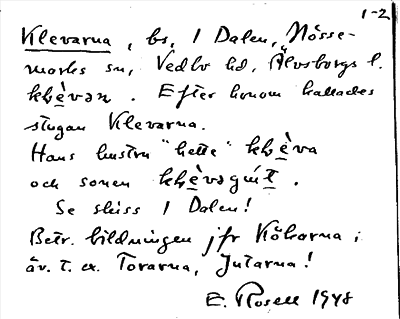 1-2
Klevarna, bs, I Dalen, Nösse-
marks sn, Vedbo hd, Älvsborgs l.
klèvən. Efter honom kallades
stugan Klevarna.
Hans hustru "hette" klèva
och sonen
Se skiss I Dalen!
Betr. bildningen jfr Kökarna;
äv. t. ex. Torarna, Jutarna!
E. Rosell 1948